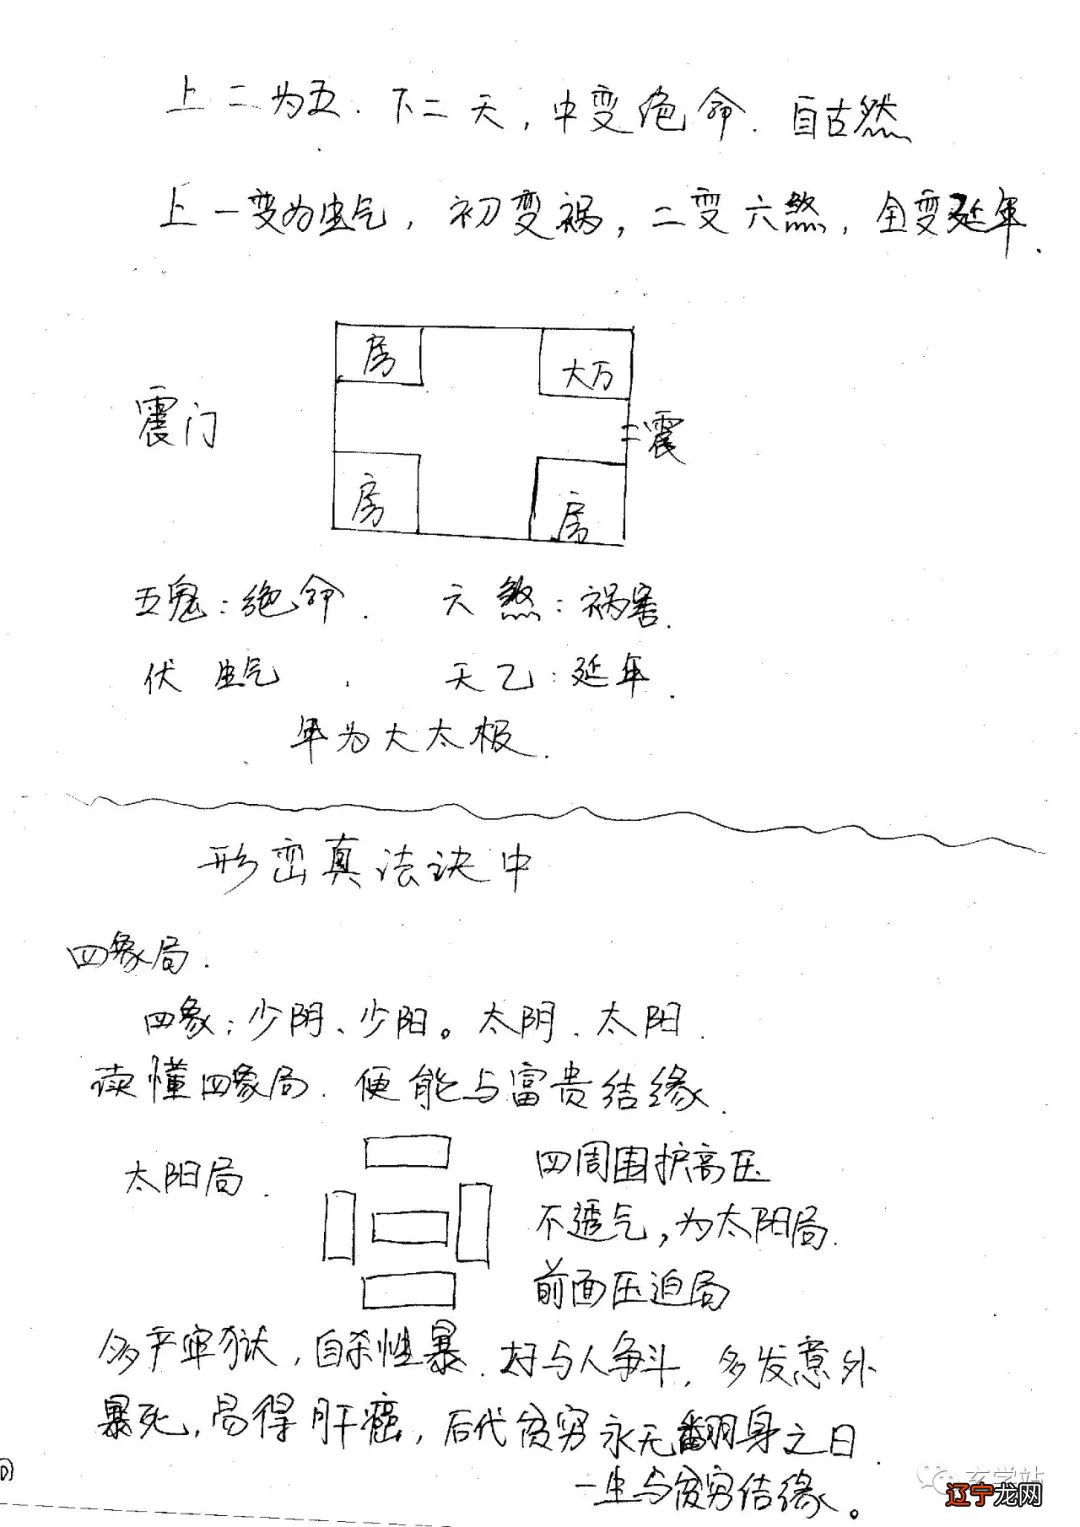 上二为五.下二天,中变绝命.自古然
上一变为生气,初变祸,二变六煞,全变延年.
房
大万
震门
二震
房
房
五鬼:绝命. 六煞:祸害.
伏 生气. 天乙:延年.
年为大太极.
形峦真法诀中
四象局.
四象:少阴、少阳。太阴.太阳.
读懂四象局.便能与富贵结缘.
太阳局.
四周围护高压
不透气,为太阳局.
前面压迫局
多产牢狱,自杀性暴.好与人争斗,多发意外
暴死,易得肝癌,后代贫穷永无翻身之日.
一生与贫穷结缘。
玄学站
辽宁龙网